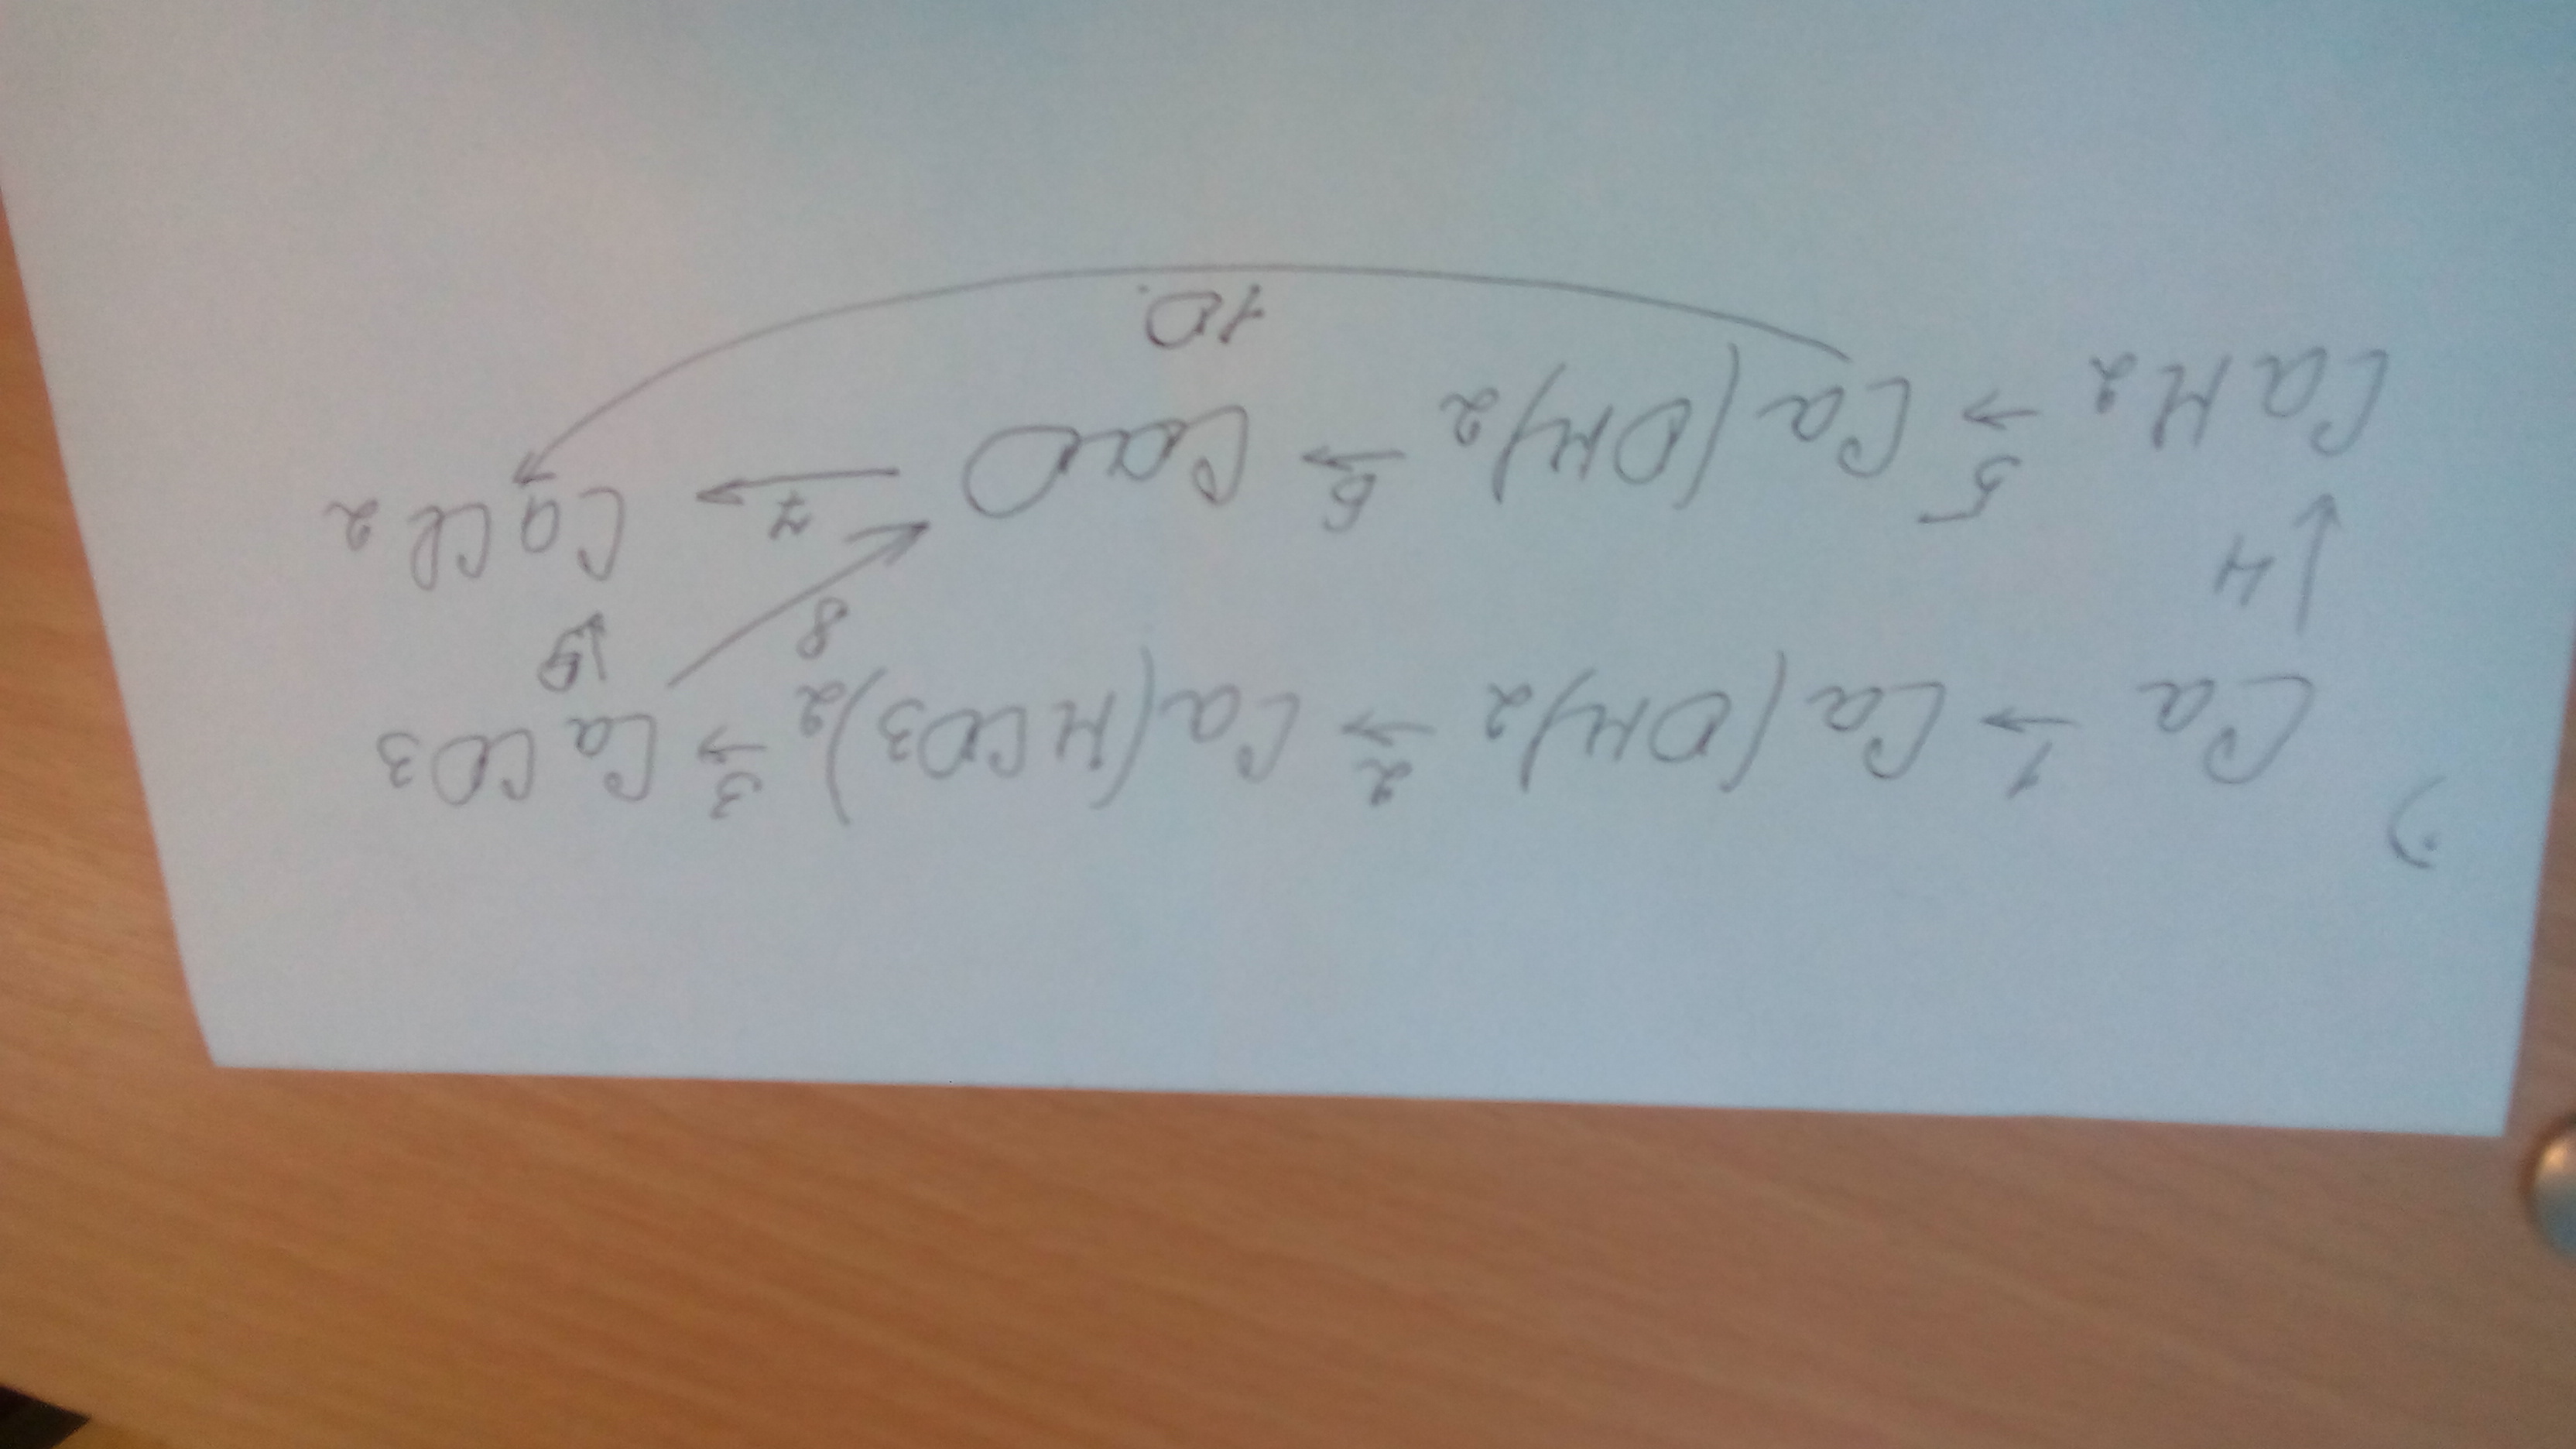 Ca →1 Ca(OH)2 →2 Ca(HCO3)2) →3 CaCO3
↓4 8 ↓9
CaH2 →5 Ca(OH)2 →6 CaO →7 CaCl2
10.